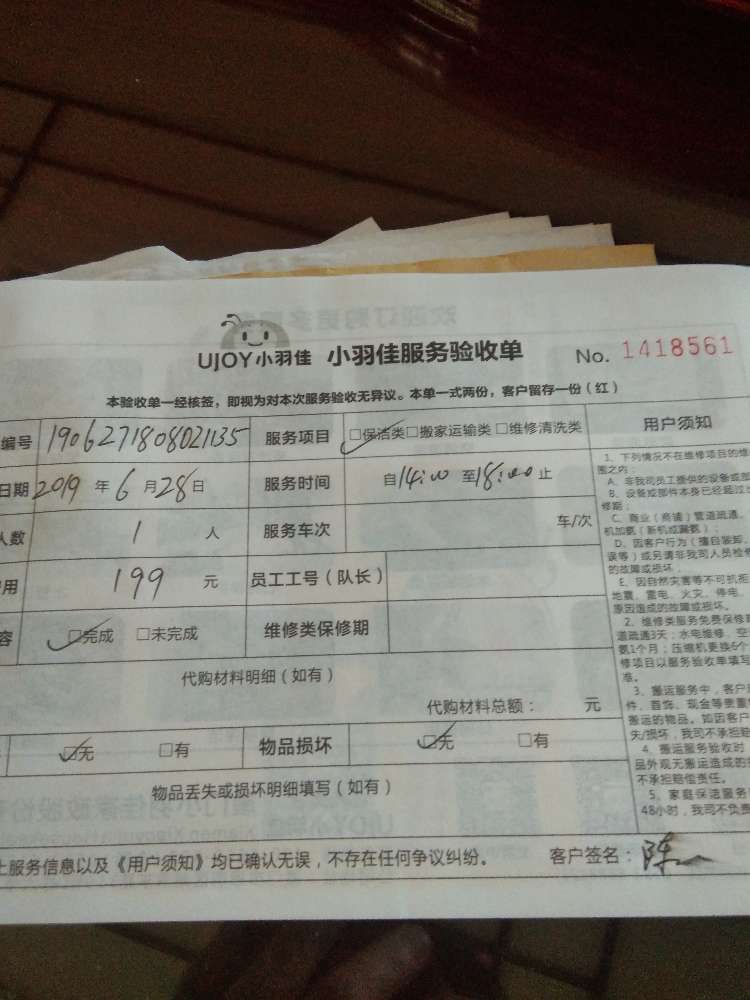 UJOY小羽佳 小羽佳服务验收单 No. 1418561
本验收单一经核签，即视为对本次服务验收无异议。本单一式两份，客户留存一份（红）
编号 1906271808021135 服务项目 □保洁类□搬家运输类□维修清洗类 用户须知
日期 2019 年 6 月 28 日 服务时间 自14:00 至18:00 止
人数 1 人 服务车次 车/次
用 199 元 员工工号（队长）
容 □完成 □未完成 维修类保修期
代购材料明细（如有）
代购材料总额： 元
□无 □有 物品损坏 □无 □有
物品丢失或损坏明细填写（如有）
上服务信息以及《用户须知》均已确认无误，不存在任何争议纠纷。 客户签名：陈
1、下列情况不在维修项目的维
围之内：
A、非我司员工提供的设备或加
B、设备或部件本身已经超过
修期；
C、商业（商铺）管道疏通、
机加氨（新机或漏氨）；
D、因客户行为（擅自装卸、
误等）或另请非我司人员检修
的故障或损坏
E、因自然灾害等不可抗拒
地震、雷电、火灾、停电、
原因造成的故障或损坏。
2、维修类服务免费保修
道疏通3天；水电维修、空
氨1个月；压缩机更换6个
修项目以服务验收单填写
准。
3、搬运服务中，客户
件、首饰、现金等贵重
搬运的物品。如因客户
失/损坏，我司不承担赔
4、搬运服务验收时
品外观无搬运造成的
不承担赔偿责任。
5、家庭保洁服务
48小时，我司不负责